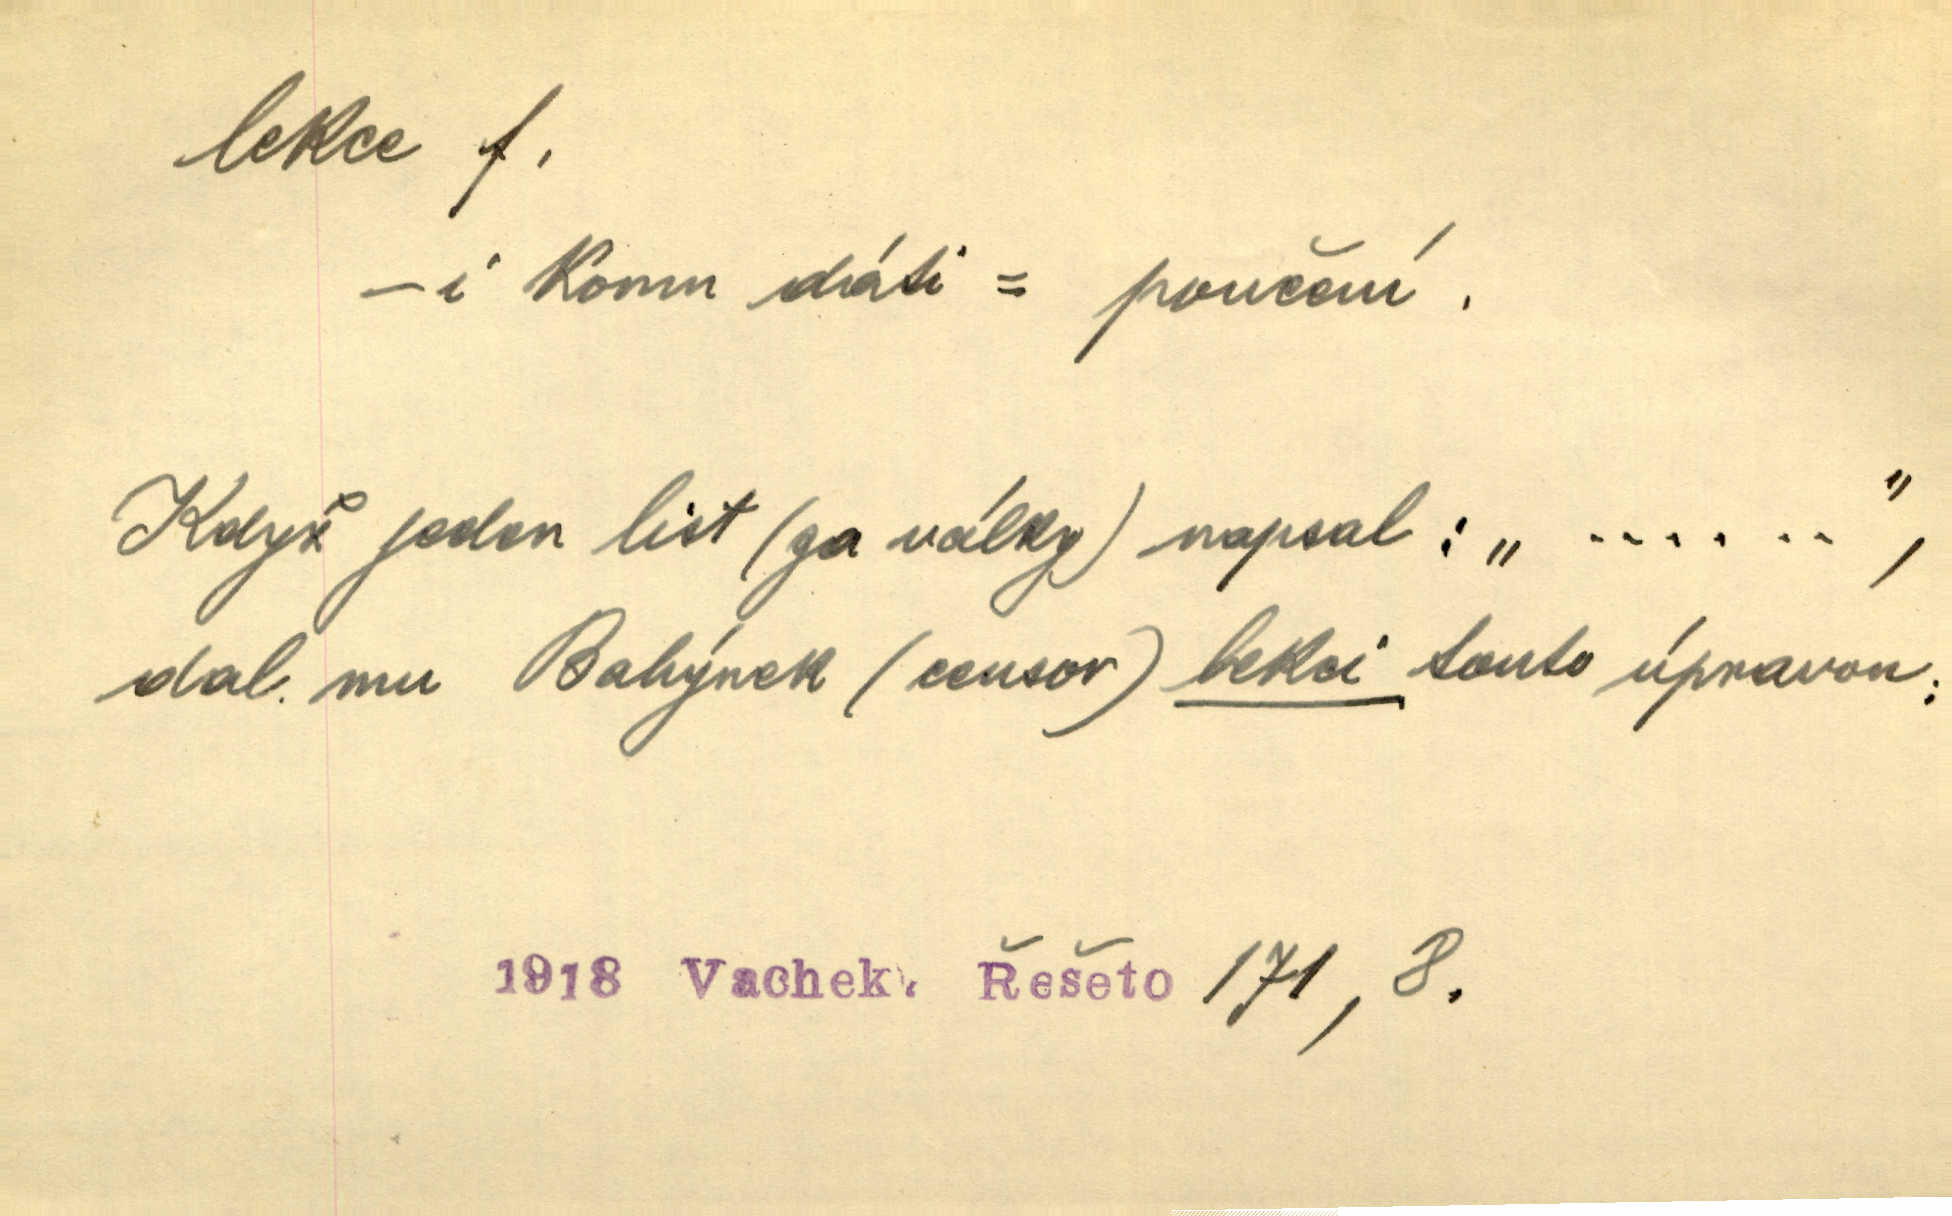 lekce f.
–i komu dáti = poučení.
Když jeden list (za války) napsal : „ ....... ",
dal mu Babýnek (censor) lekci touto úpravou:
1918 Vachek. Řešeto 171, 8.